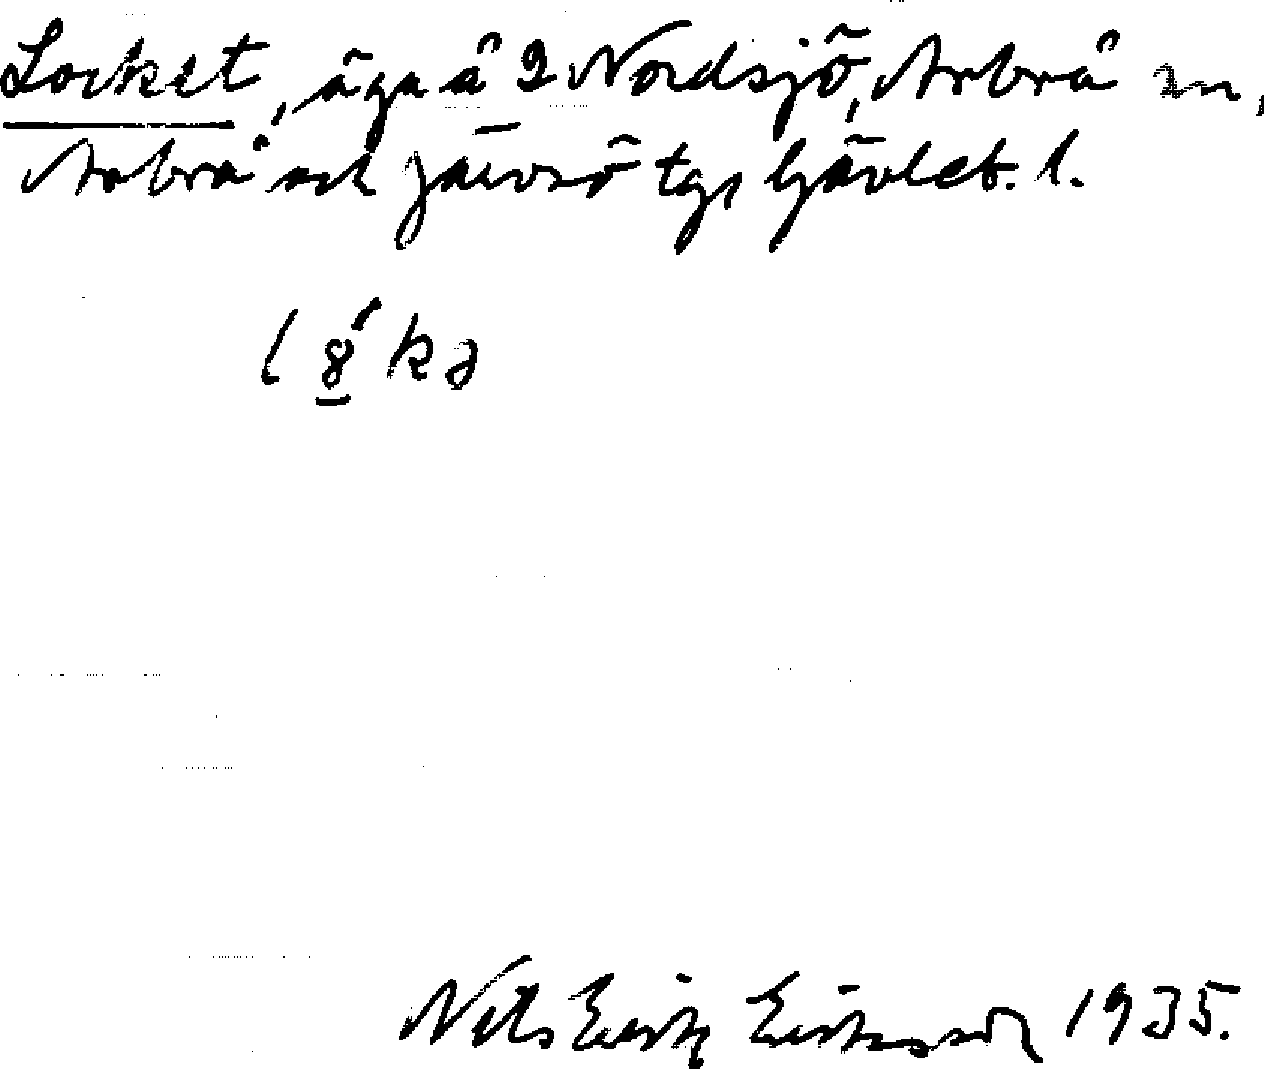 Locket, äga å 2 Nordsjö, Arbrå sn,
Arbrå och Järvsö tg, Gävleb. l.
Nils Erik Eriksson 1935.